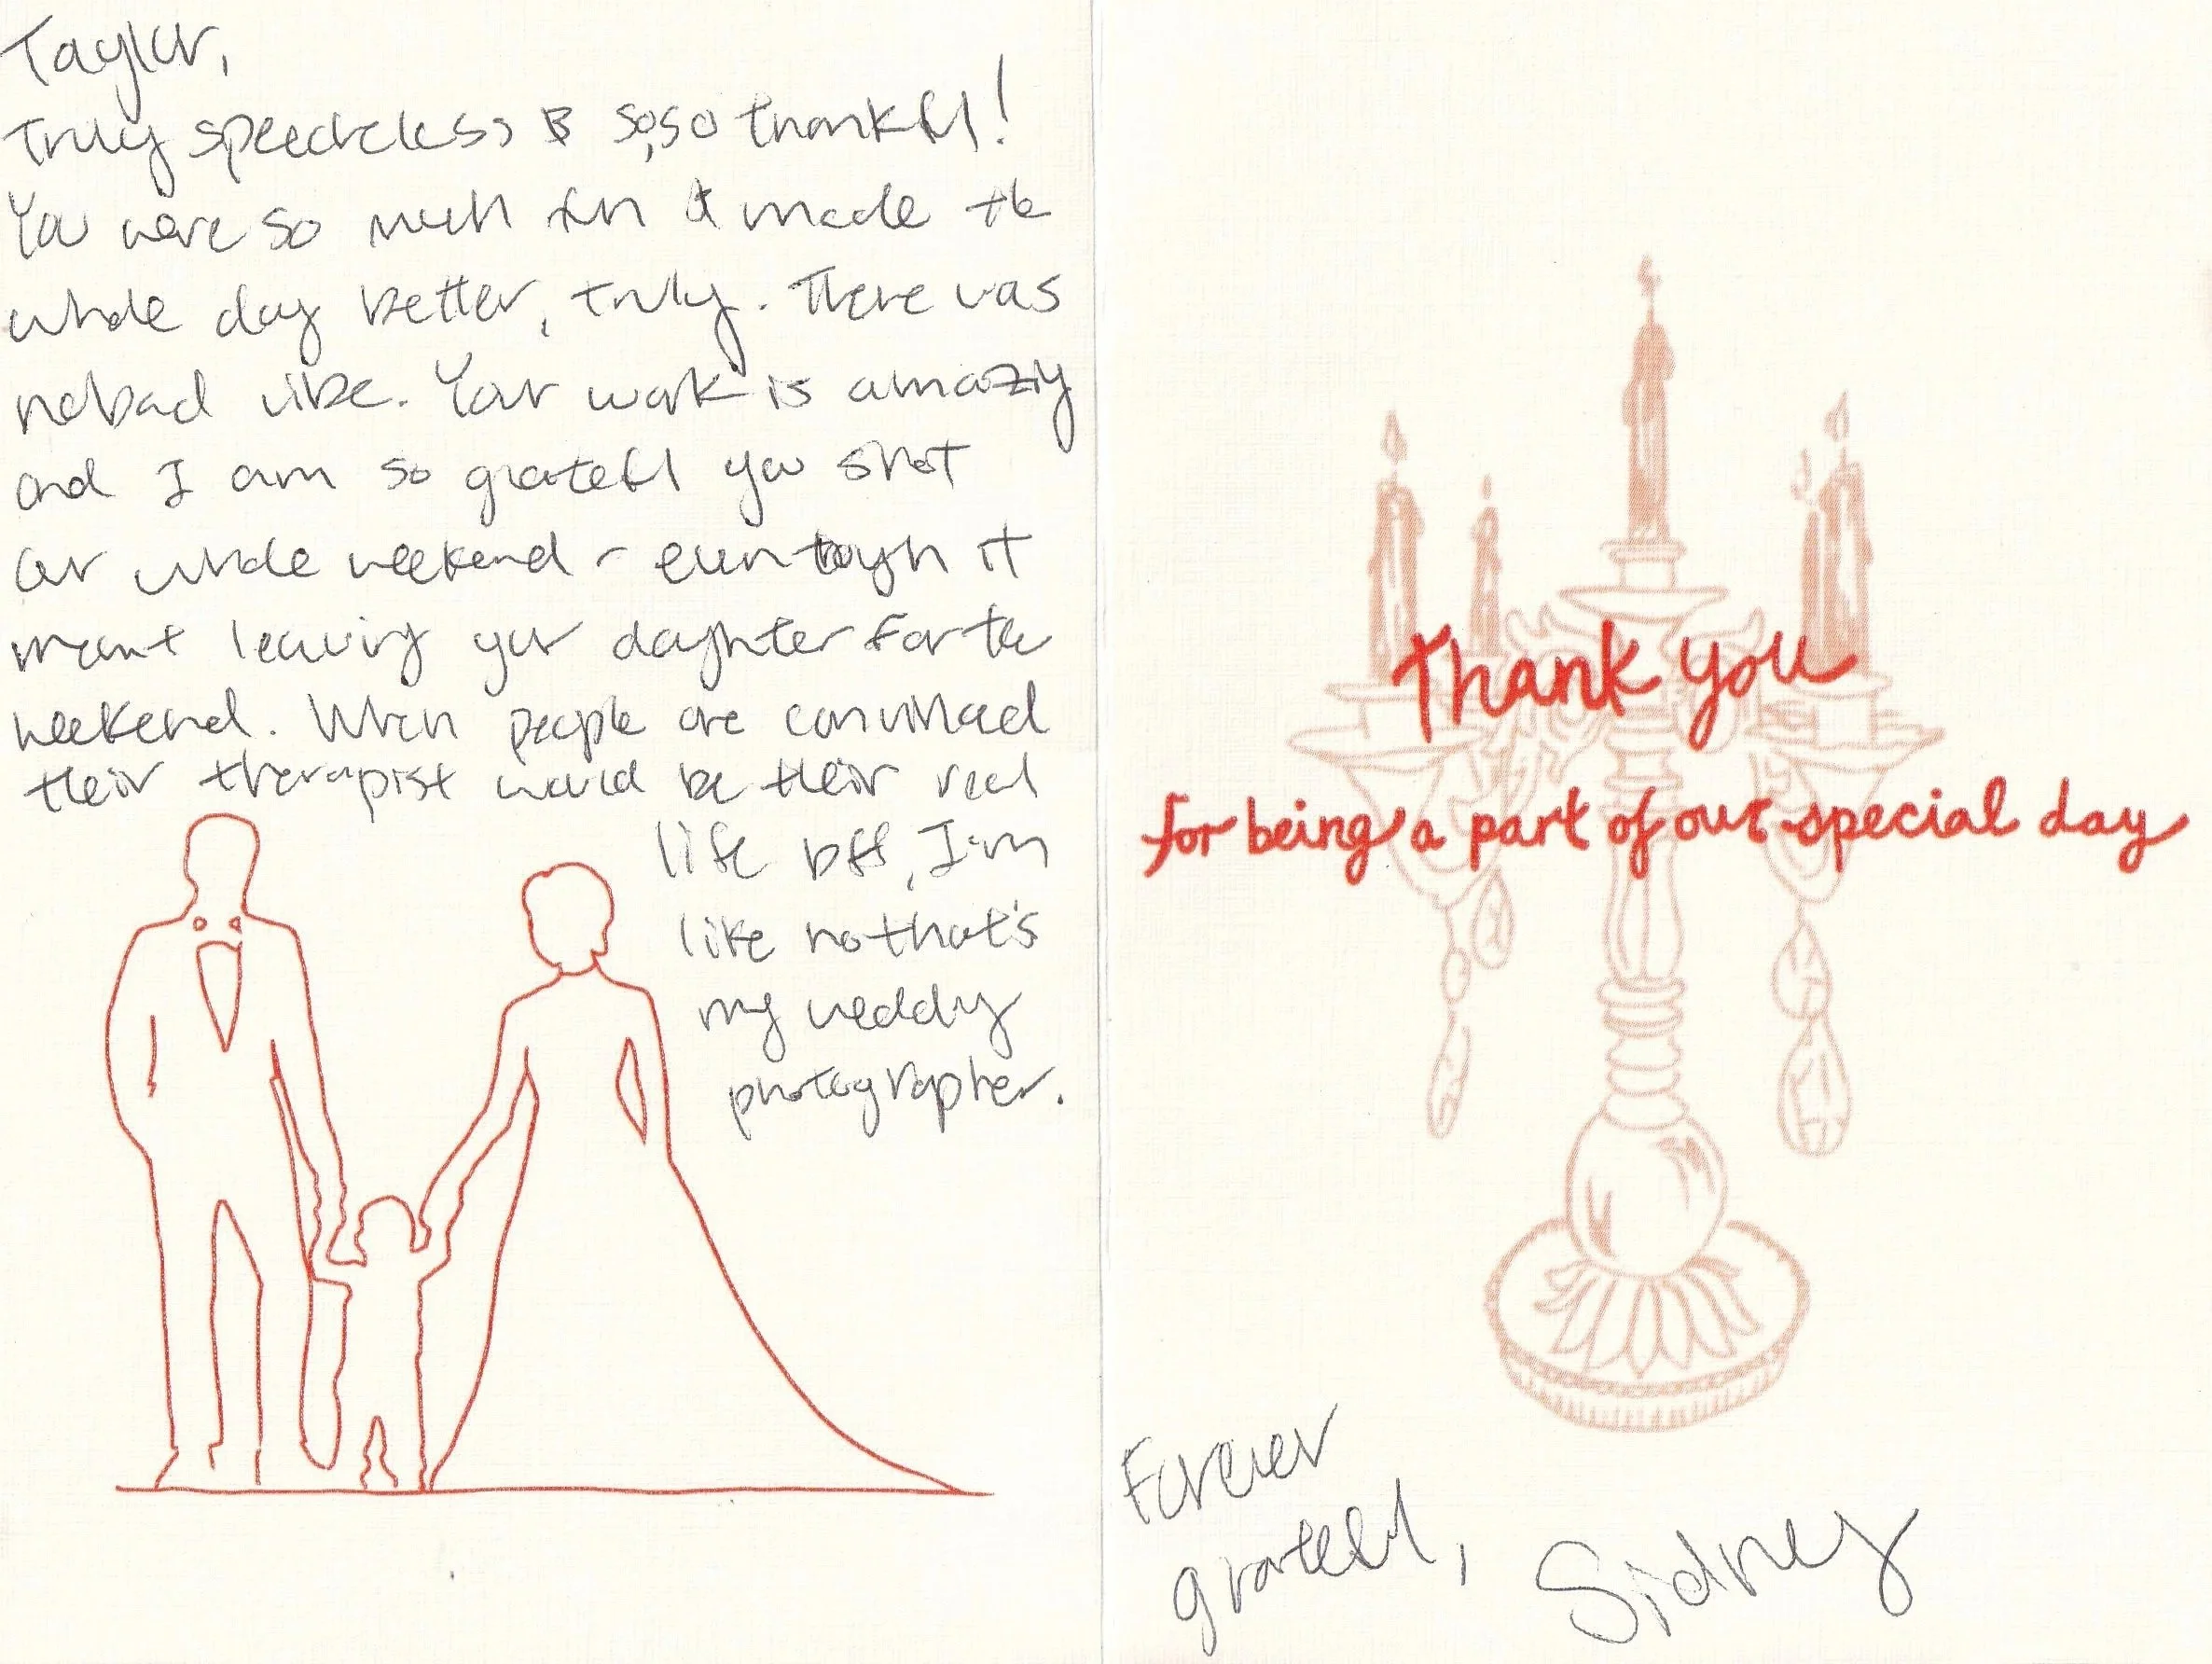 Taylor,
Truly speechless & so, so thankful!
You were so much fun & made the
whole day better, truly. There was
no bad vibe. Your work is amazing
and I am so grateful you shot
our whole weekend - even though it
meant leaving your daughter for the
weekend. When people are convinced
their therapist would be their real
life bff, I'm
like no that's
my wedding
photographer.
Thank you
for being a part of our special day
Forever
grateful,
Sidney